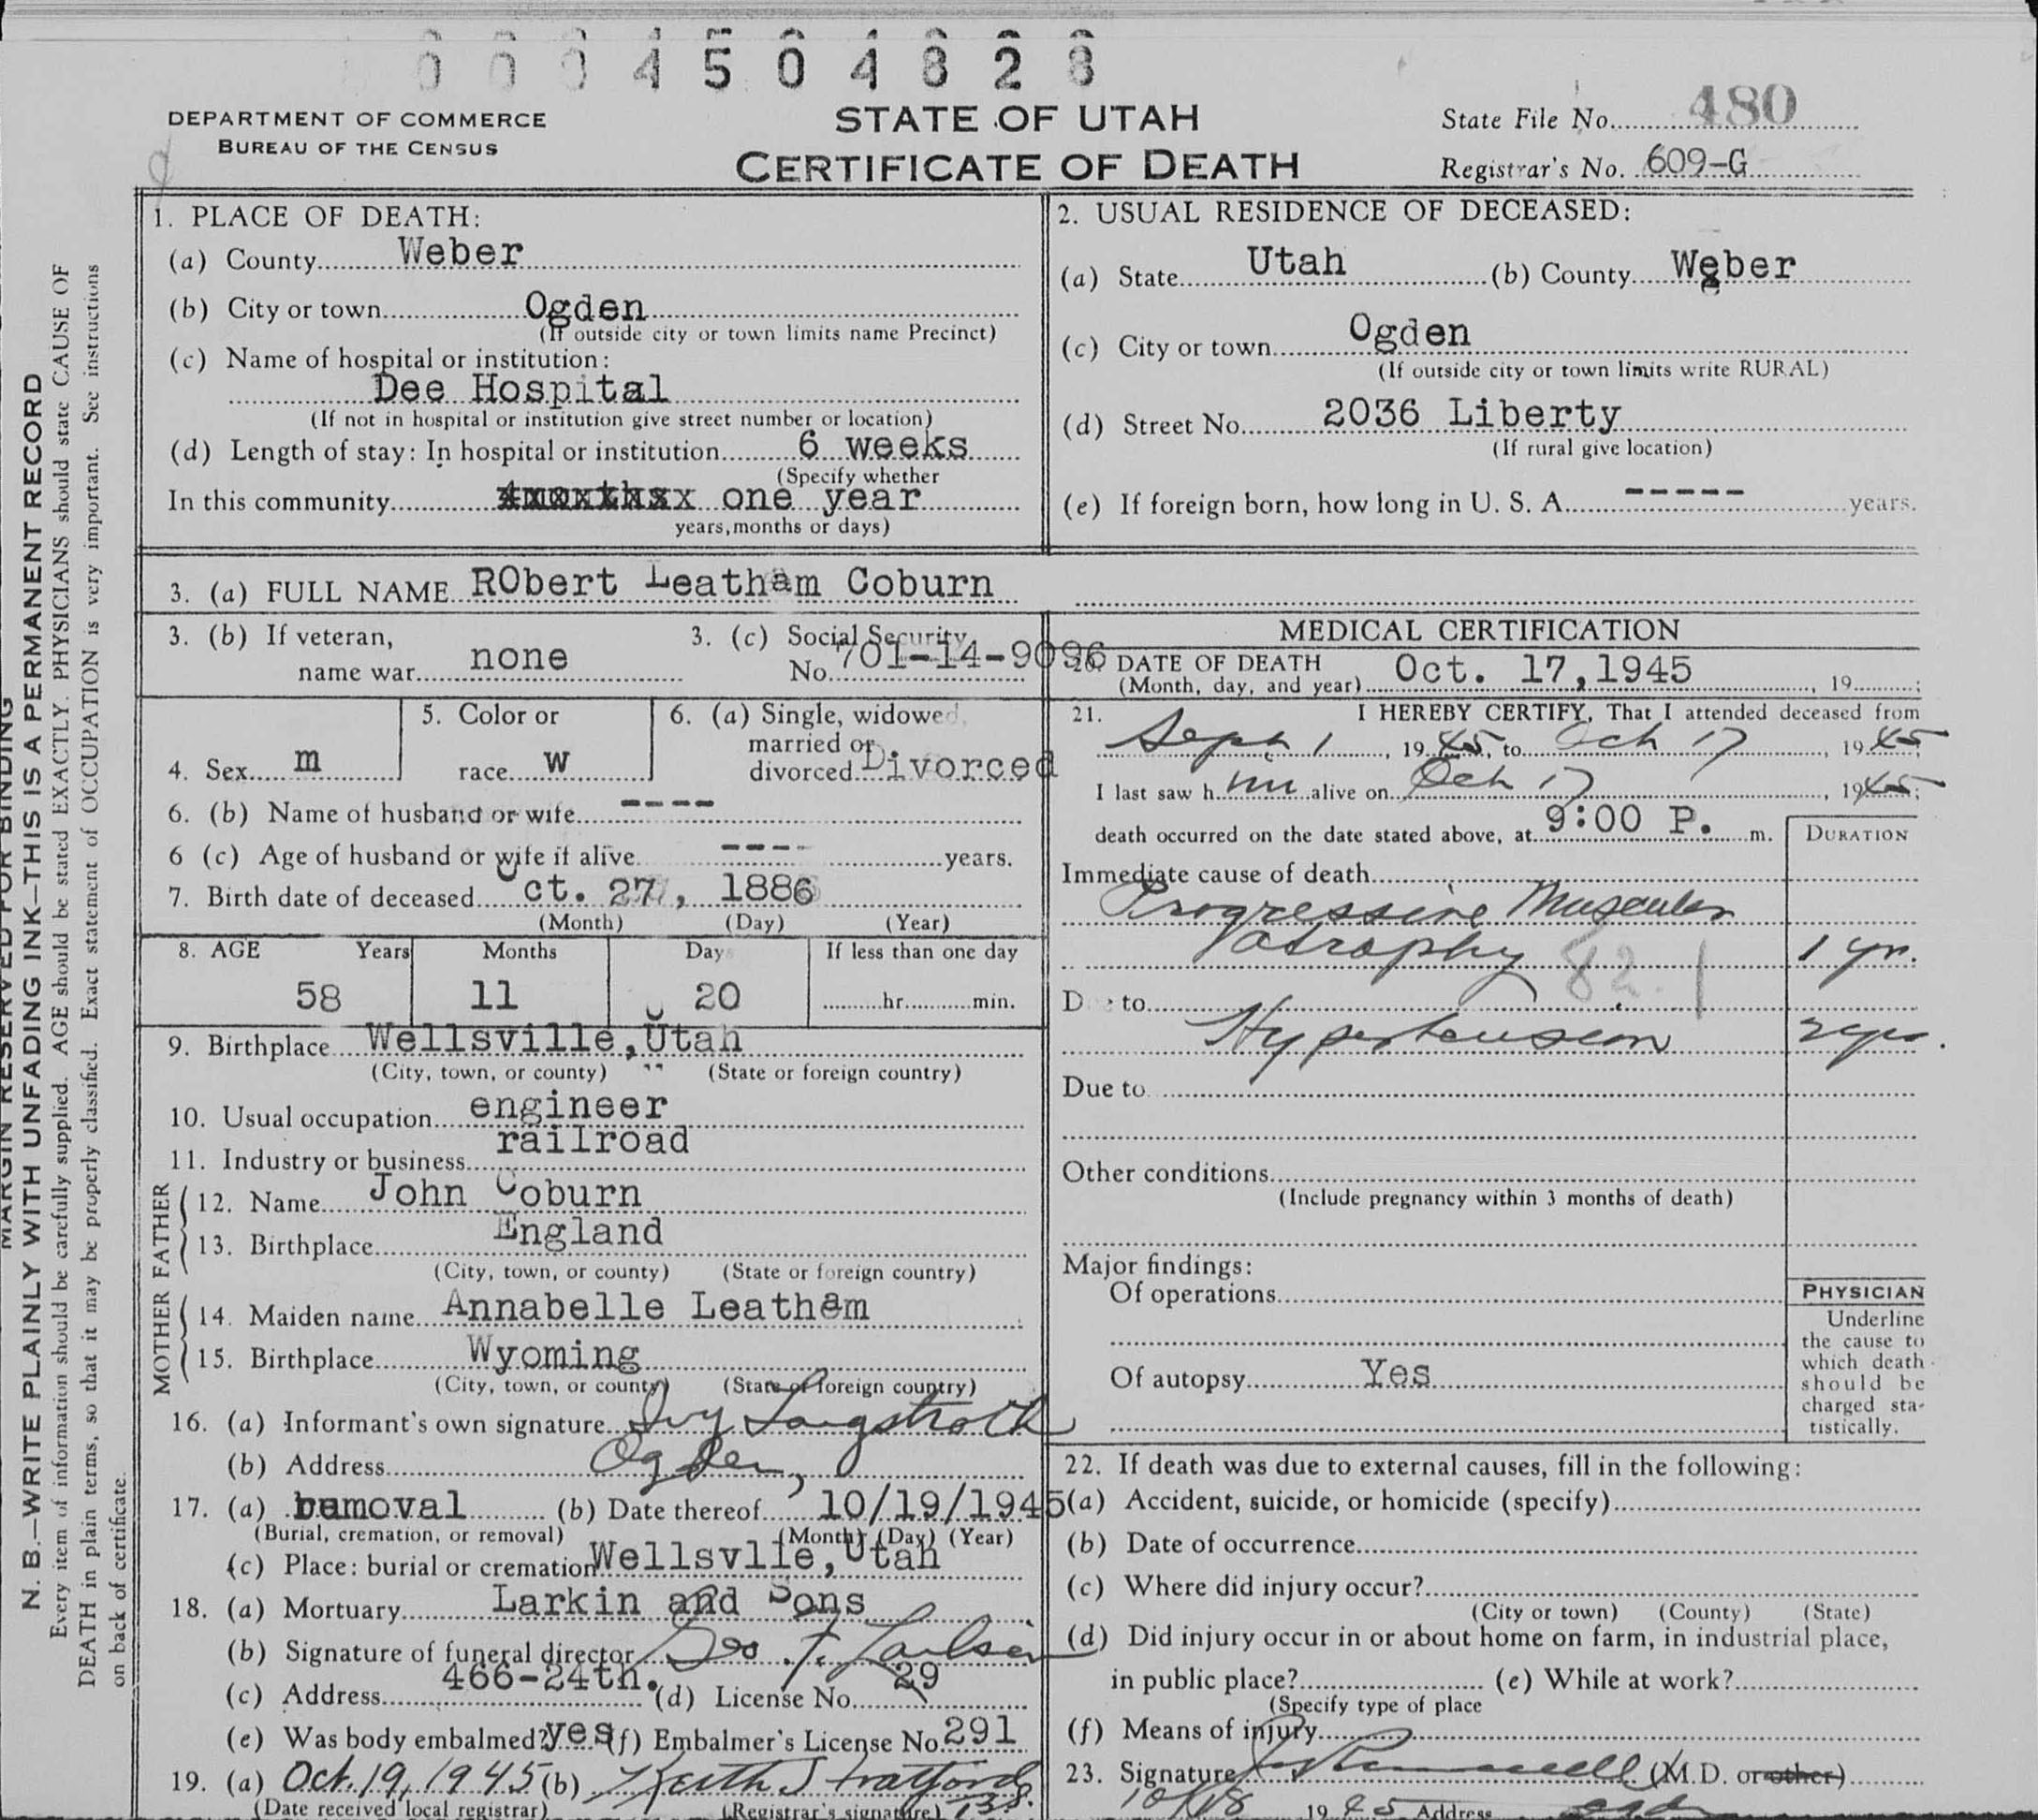 0004504828
DEPARTMENT OF COMMERCE
BUREAU OF THE CENSUS
STATE OF UTAH
CERTIFICATE OF DEATH
State File No. 480
Registrar's No. 609-G
MARGIN RESERVED FOR BINDING
N. B.—WRITE PLAINLY WITH UNFADING INK—THIS IS A PERMANENT RECORD
Every item of information should be carefully supplied. AGE should be stated EXACTLY. PHYSICIANS should state CAUSE OF
DEATH in plain terms, so that it may be properly classified. Exact statement of OCCUPATION is very important. See instructions
on back of certificate.
1. PLACE OF DEATH:
(a) County Weber
(b) City or town Ogden
(If outside city or town limits name Precinct)
(c) Name of hospital or institution:
Dee Hospital
(If not in hospital or institution give street number or location)
(d) Length of stay: In hospital or institution 6 weeks
(Specify whether
In this community one year
years, months or days)
2. USUAL RESIDENCE OF DECEASED:
(a) State Utah (b) County Weber
(c) City or town Ogden
(If outside city or town limits write RURAL)
(d) Street No. 2036 Liberty
(If rural give location)
(e) If foreign born, how long in U. S. A. ----- years.
3. (a) FULL NAME RObert Leatham Coburn
3. (b) If veteran,
name war none
3. (c) Social Security
No. 701-14-9096
4. Sex m
5. Color or
race w
6. (a) Single, widowed,
married or
divorced Divorced
6. (b) Name of husband or wife ----
6 (c) Age of husband or wife if alive ---- years.
7. Birth date of deceased Oct. 27, 1886
(Month) (Day) (Year)
8. AGE Years Months Days If less than one day
58 11 20 hr. min.
9. Birthplace Wellsville, Utah
(City, town, or county) (State or foreign country)
10. Usual occupation engineer
11. Industry or business railroad
FATHER
12. Name John Coburn
13. Birthplace England
(City, town, or county) (State or foreign country)
MOTHER
14. Maiden name Annabelle Leatham
15. Birthplace Wyoming
(City, town, or county) (State or foreign country)
16. (a) Informant's own signature Ivy Langstroth
(b) Address Ogden,
17. (a) removal (b) Date thereof 10/19/1945
(Burial, cremation, or removal) (Month) (Day) (Year)
(c) Place: burial or cremation Wellsvlle, Utah
18. (a) Mortuary Larkin and Sons
(b) Signature of funeral director Geo. F.
(c) Address 466-24th. (d) License No. 29
(e) Was body embalmed? yes (f) Embalmer's License No. 291
19. (a) Oct. 19, 1945 (b) Keith Stratford
(Date received local registrar) (Registrar's signature)
MEDICAL CERTIFICATION
20. DATE OF DEATH Oct. 17, 1945
(Month, day, and year) , 19 ;
21. I HEREBY CERTIFY, That I attended deceased from
Sept 1, 1945, to Oct 17, 1945
I last saw him alive on Oct 17, 1945;
death occurred on the date stated above, at 9:00 P. m.
DURATION
Immediate cause of death
Progressive Muscular
atrophy 82.1 1 yr.
Due to
Hypertension 2 yrs.
Due to
Other conditions
(Include pregnancy within 3 months of death)
Major findings:
Of operations
Of autopsy Yes
PHYSICIAN
Underline
the cause to
which death
should be
charged sta-
tistically.
22. If death was due to external causes, fill in the following:
(a) Accident, suicide, or homicide (specify)
(b) Date of occurrence
(c) Where did injury occur?
(City or town) (County) (State)
(d) Did injury occur in or about home on farm, in industrial place,
in public place? (e) While at work?
(Specify type of place
(f) Means of injury
23. Signature (M.D. or other)
10/18 1945 Address